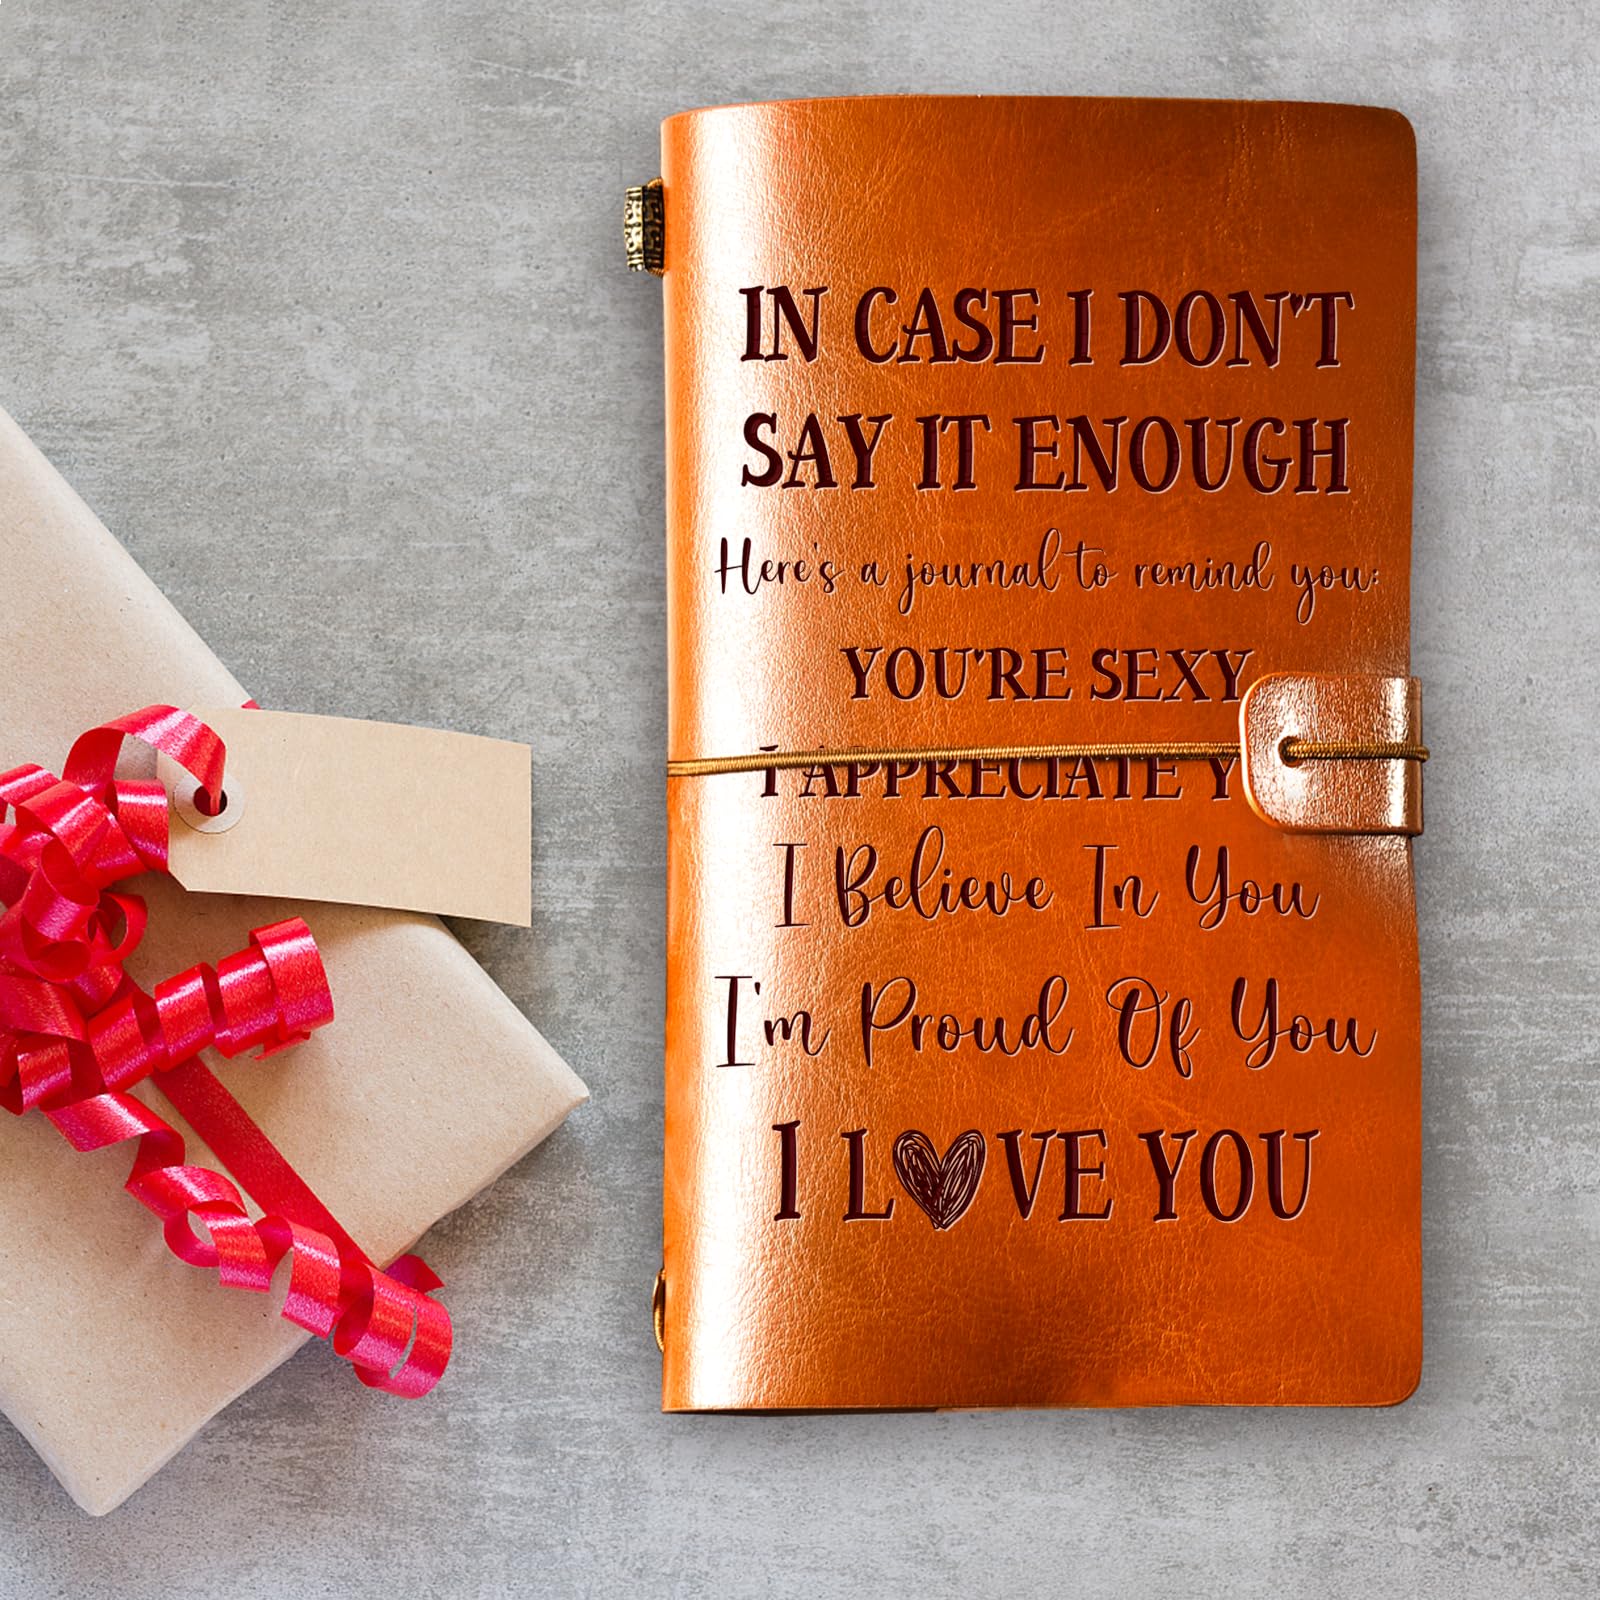 IN CASE I DON'T
SAY IT ENOUGH
Here's a journal to remind you:
YOU'RE SEXY
I APPRECIATE
I Believe In You
I'm Proud Of You
I LOVE YOU